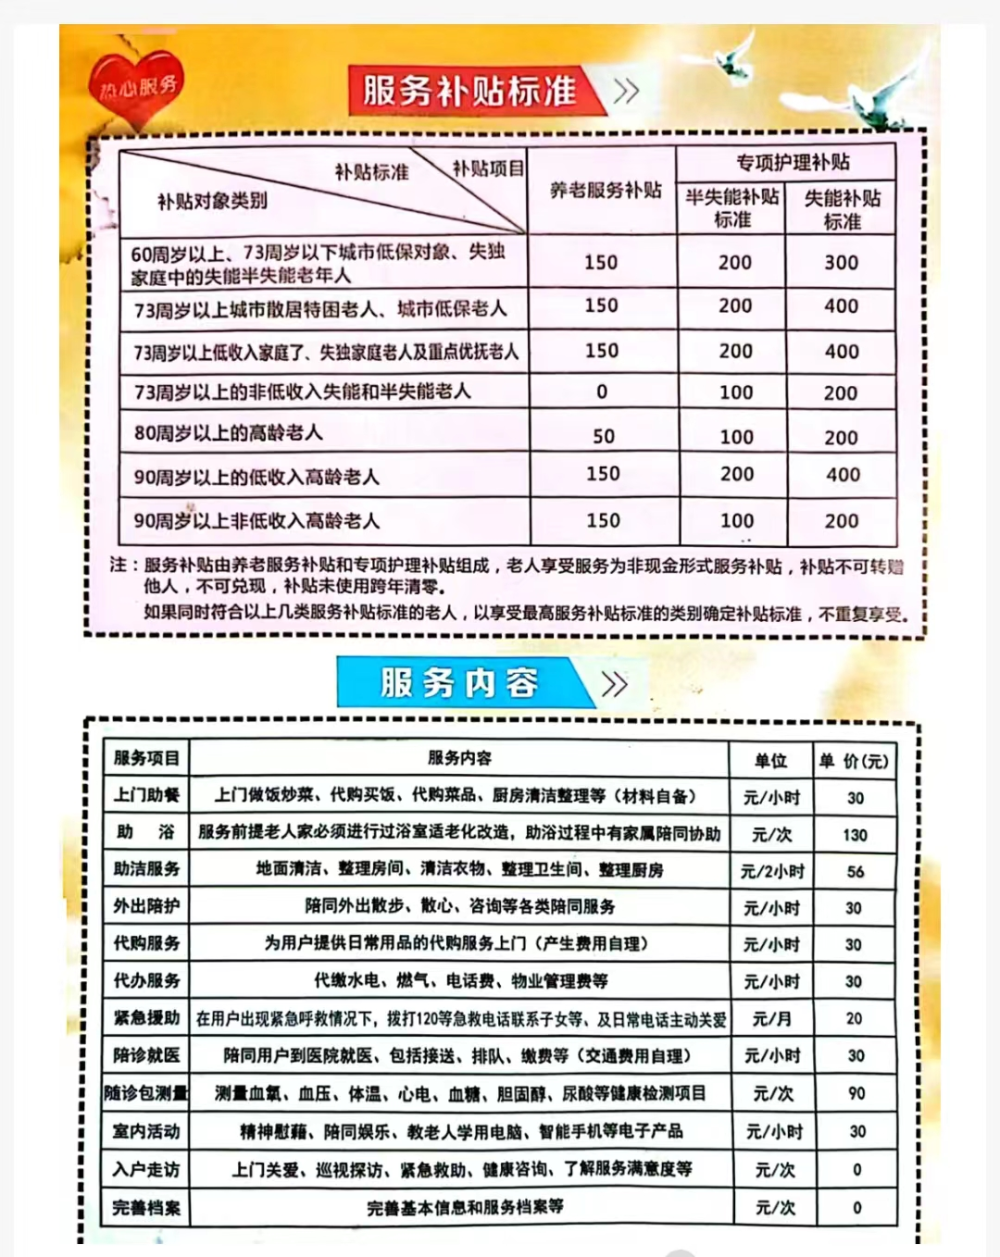 热心服务
服务补贴标准
补贴标准
补贴项目
补贴对象类别
养老服务补贴
专项护理补贴
半失能补贴
标准
失能补贴
标准
60周岁以上、73周岁以下城市低保对象、失独
家庭中的失能半失能老年人
150 200 300
73周岁以上城市散居特困老人、城市低保老人 150 200 400
73周岁以上低收入家庭了、失独家庭老人及重点优抚老人 150 200 400
73周岁以上的非低收入失能和半失能老人 0 100 200
80周岁以上的高龄老人 50 100 200
90周岁以上的低收入高龄老人 150 200 400
90周岁以上非低收入高龄老人 150 100 200
注：服务补贴由养老服务补贴和专项护理补贴组成，老人享受服务为非现金形式服务补贴，补贴不可转赠
他人，不可兑现，补贴未使用跨年清零。
如果同时符合以上几类服务补贴标准的老人，以享受最高服务补贴标准的类别确定补贴标准，不重复享受。
服务内容
服务项目 服务内容 单位 单 价(元)
上门助餐 上门做饭炒菜、代购买饭、代购菜品、厨房清洁整理等（材料自备） 元/小时 30
助 浴 服务前提老人家必须进行过浴室适老化改造，助浴过程中有家属陪同协助 元/次 130
助洁服务 地面清洁、整理房间、清洁衣物、整理卫生间、整理厨房 元/2小时 56
外出陪护 陪同外出散步、散心、咨询等各类陪同服务 元/小时 30
代购服务 为用户提供日常用品的代购服务上门（产生费用自理） 元/小时 30
代办服务 代缴水电、燃气、电话费、物业管理费等 元/小时 30
紧急援助 在用户出现紧急呼救情况下，拨打120等急救电话联系子女等、及日常电话主动关爱 元/月 20
陪诊就医 陪同用户到医院就医、包括接送、排队、缴费等（交通费用自理） 元/小时 30
随诊包测量 测量血氧、血压、体温、心电、血糖、胆固醇、尿酸等健康检测项目 元/次 90
室内活动 精神慰藉、陪同娱乐、教老人学用电脑、智能手机等电子产品 元/小时 30
入户走访 上门关爱、巡视探访、紧急救助、健康咨询、了解服务满意度等 元/次 0
完善档案 完善基本信息和服务档案等 元/次 0